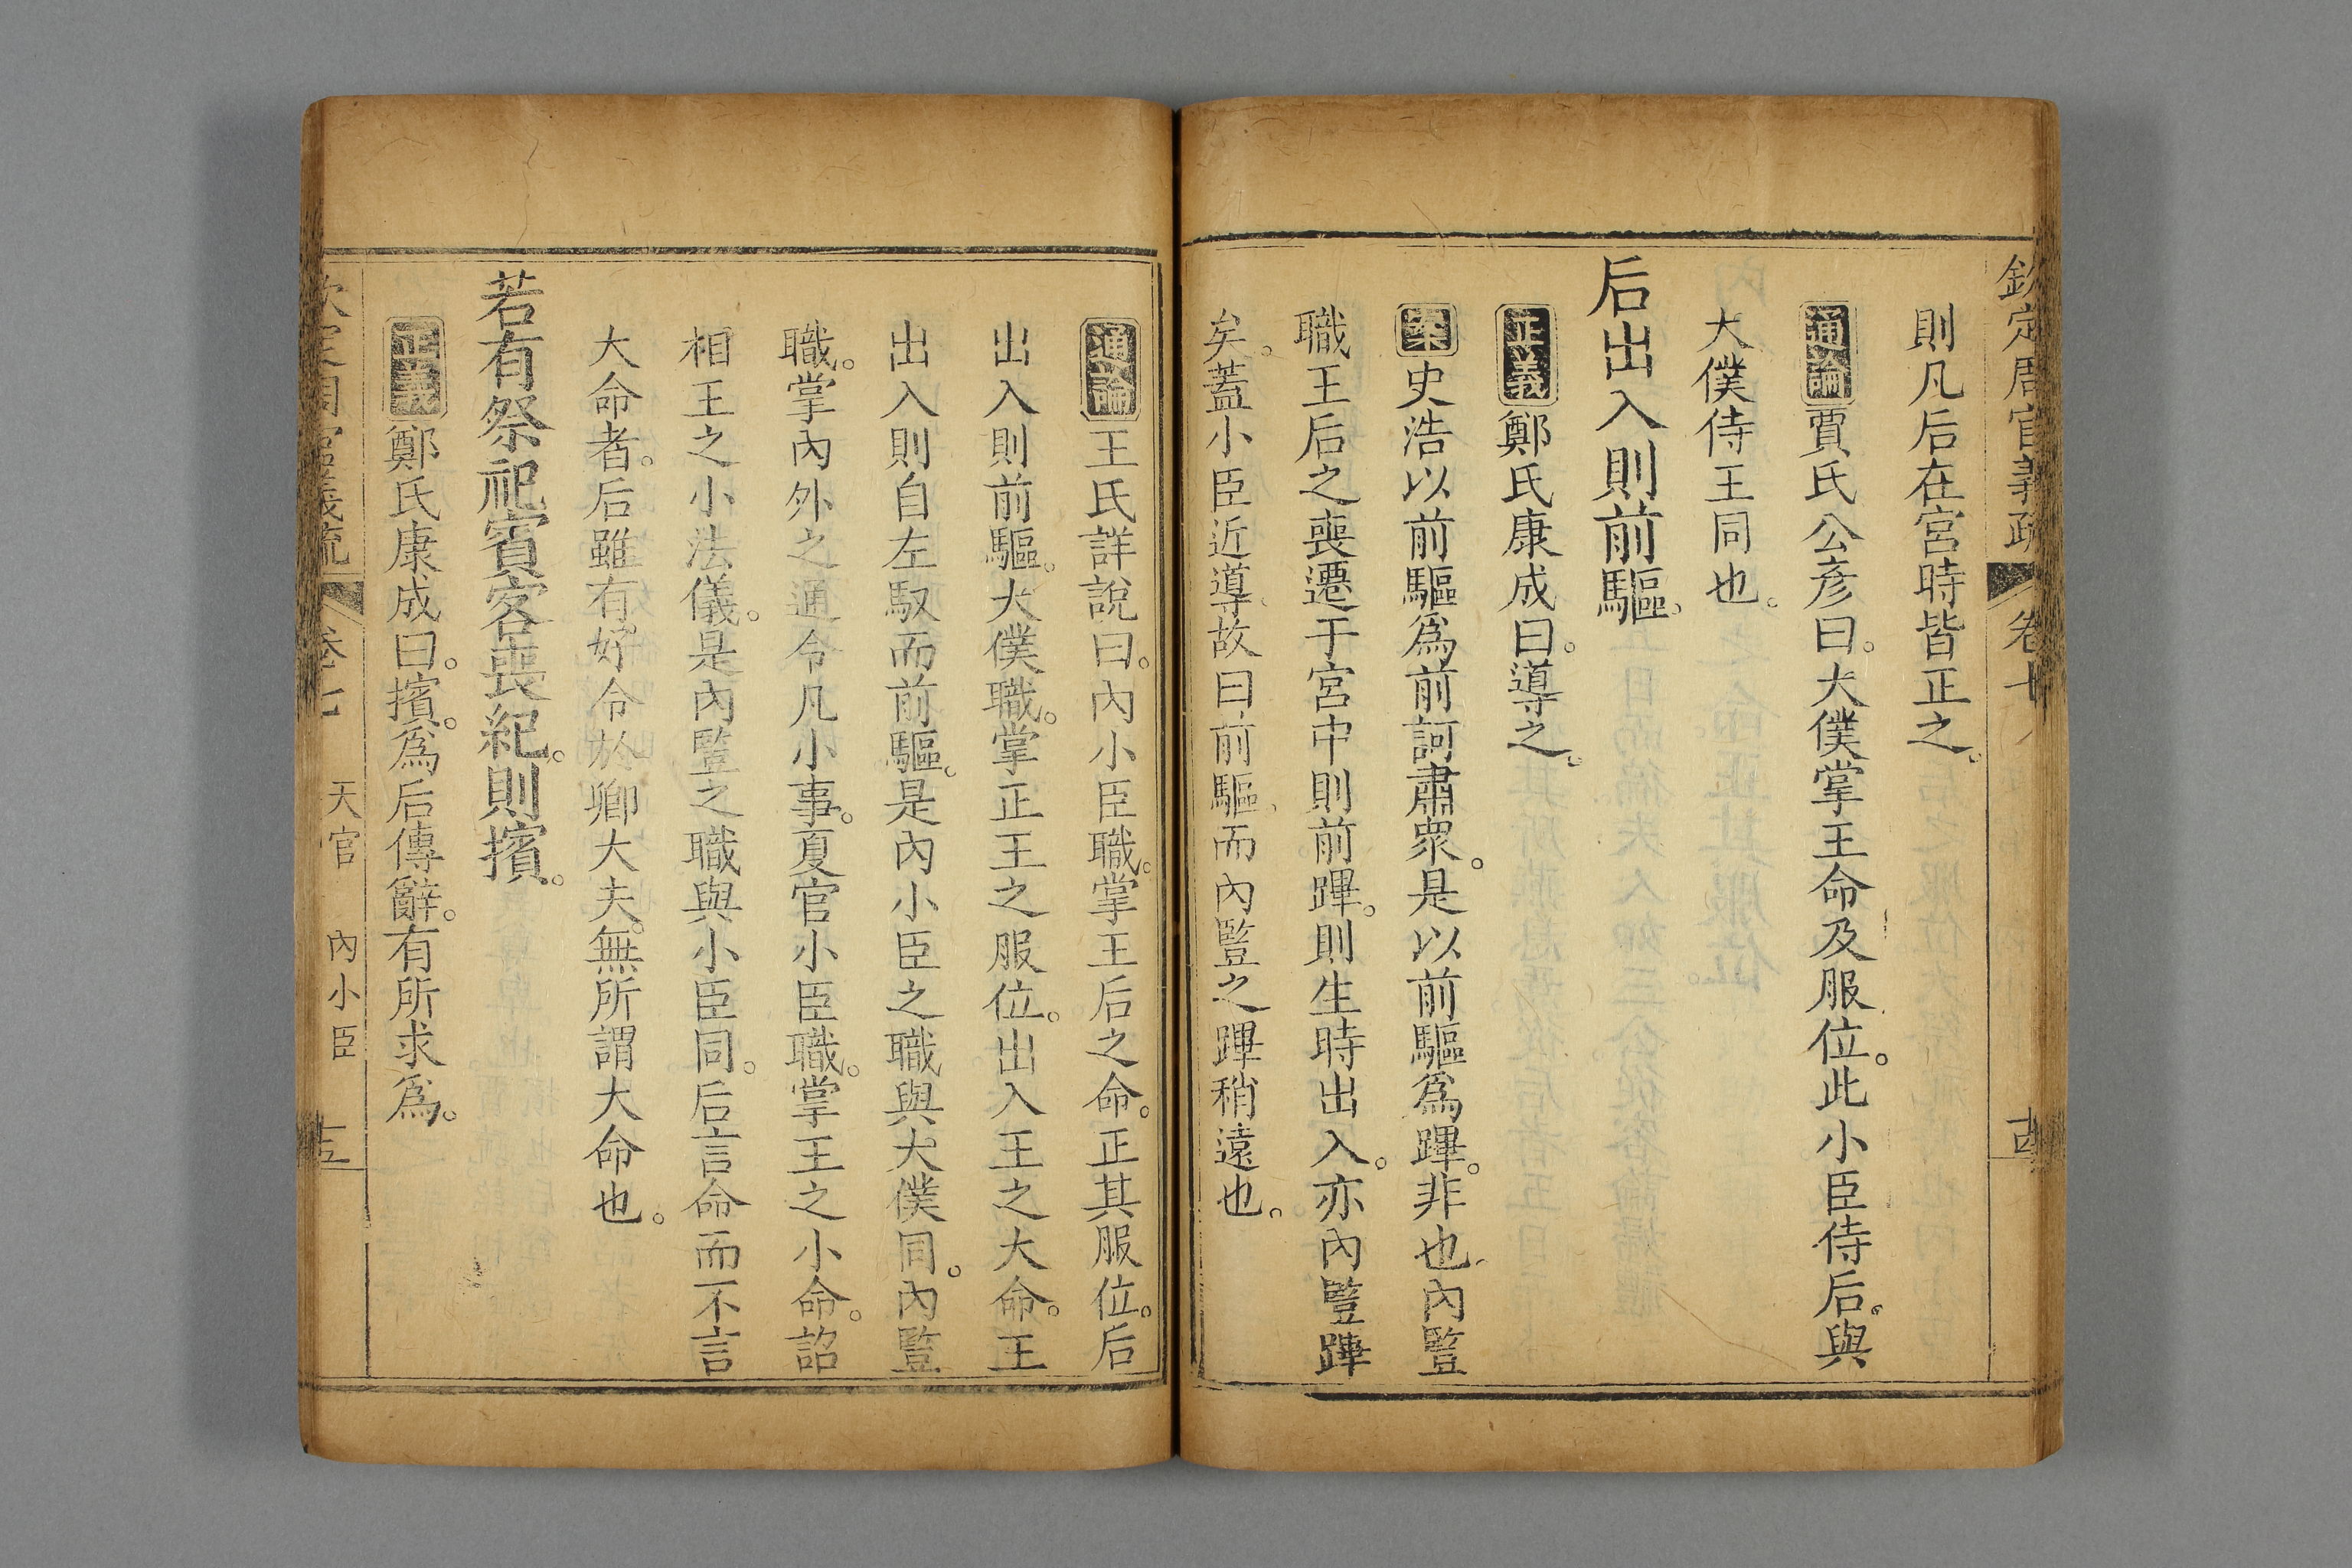 欽定周官義疏 卷七 十四
則凡后在宮時皆正之。
通論賈氏公彥曰。大僕掌王命及服位。此小臣侍后。與
大僕侍王同也。
后出入則前驅。
正義鄭氏康成曰。導之。
案史浩以前驅爲前訶肅衆。是以前驅爲蹕。非也。內豎
職王后之喪遷于宮中則前蹕。則生時出入。亦內豎蹕
矣。蓋小臣近導。故曰前驅。而內豎之蹕稍遠也。
通論王氏詳說曰。內小臣職。掌王后之命。正其服位。后
出入則前驅。大僕職。掌正王之服位。出入王之大命。王
出入則自左馭而前驅。是內小臣之職與大僕同。內豎
職。掌內外之通令凡小事。夏官小臣職。掌王之小命。詔
相王之小法儀。是內豎之職與小臣同。后言命而不言
大命者。后雖有好令於卿大夫。無所謂大命也。
若有祭祀賓客喪紀。則擯。
正義鄭氏康成曰。擯。爲后傳辭。有所求爲。
欽定周官義疏 卷七 天官 內小臣 十五